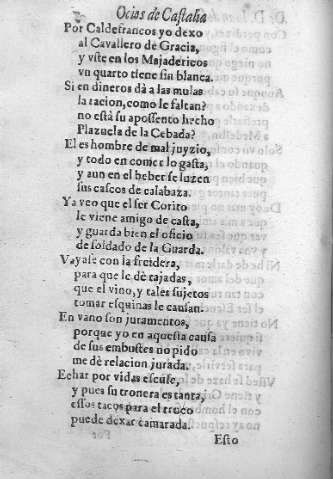 Ocios de Castalia
Por Caldefrancos yo dexo
al Cavallero de Gracia,
y viste en los Majadericos
vn quarto tiene sin blanca.
Si en dineros dà a las mulas
la racion, como le faltan?
no està su aposento hecho
Plazuela de la Cebada?
El es hombre de mal juyzio,
y todo en comer lo gasta,
y aun en el beber se luzen
sus cascos de calabaza.
Ya veo que el ser Corito
le viene amigo de casta,
y guarda bien el oficio
de soldado de la Guarda.
Vayase con la freidera,
para que le dè tajadas,
que el vino, y tales sujetos
tomar esquinas le causan.
En vano son juramentos,
porque yo en aquesta causa
de sus embustes no pido
me dè relacion jurada.
Echar por vidas escuse,
y pues su tronera es tanta,
essos tacos para el truco
puede dexar camarada.
Esto